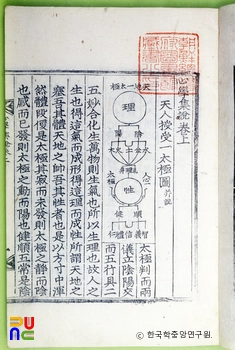 心學集說卷上
天人授受一太極圖 附說
理
陽 陰
性
健 順
仁 禮 信 義 智
太極判而兩
儀立陰陽交
而五行具二
五妙合化生萬物則生氣也所以生理也故人之
生也得這氣而成形得這理而成性所謂天地之
塞吾其體天地之帥吾其性者也是以方寸中渾
然體段便是太極其寂而未發則太極之靜而陰
也感而已發則太極之動而陽也健順五常是陰
한국학중앙연구원.